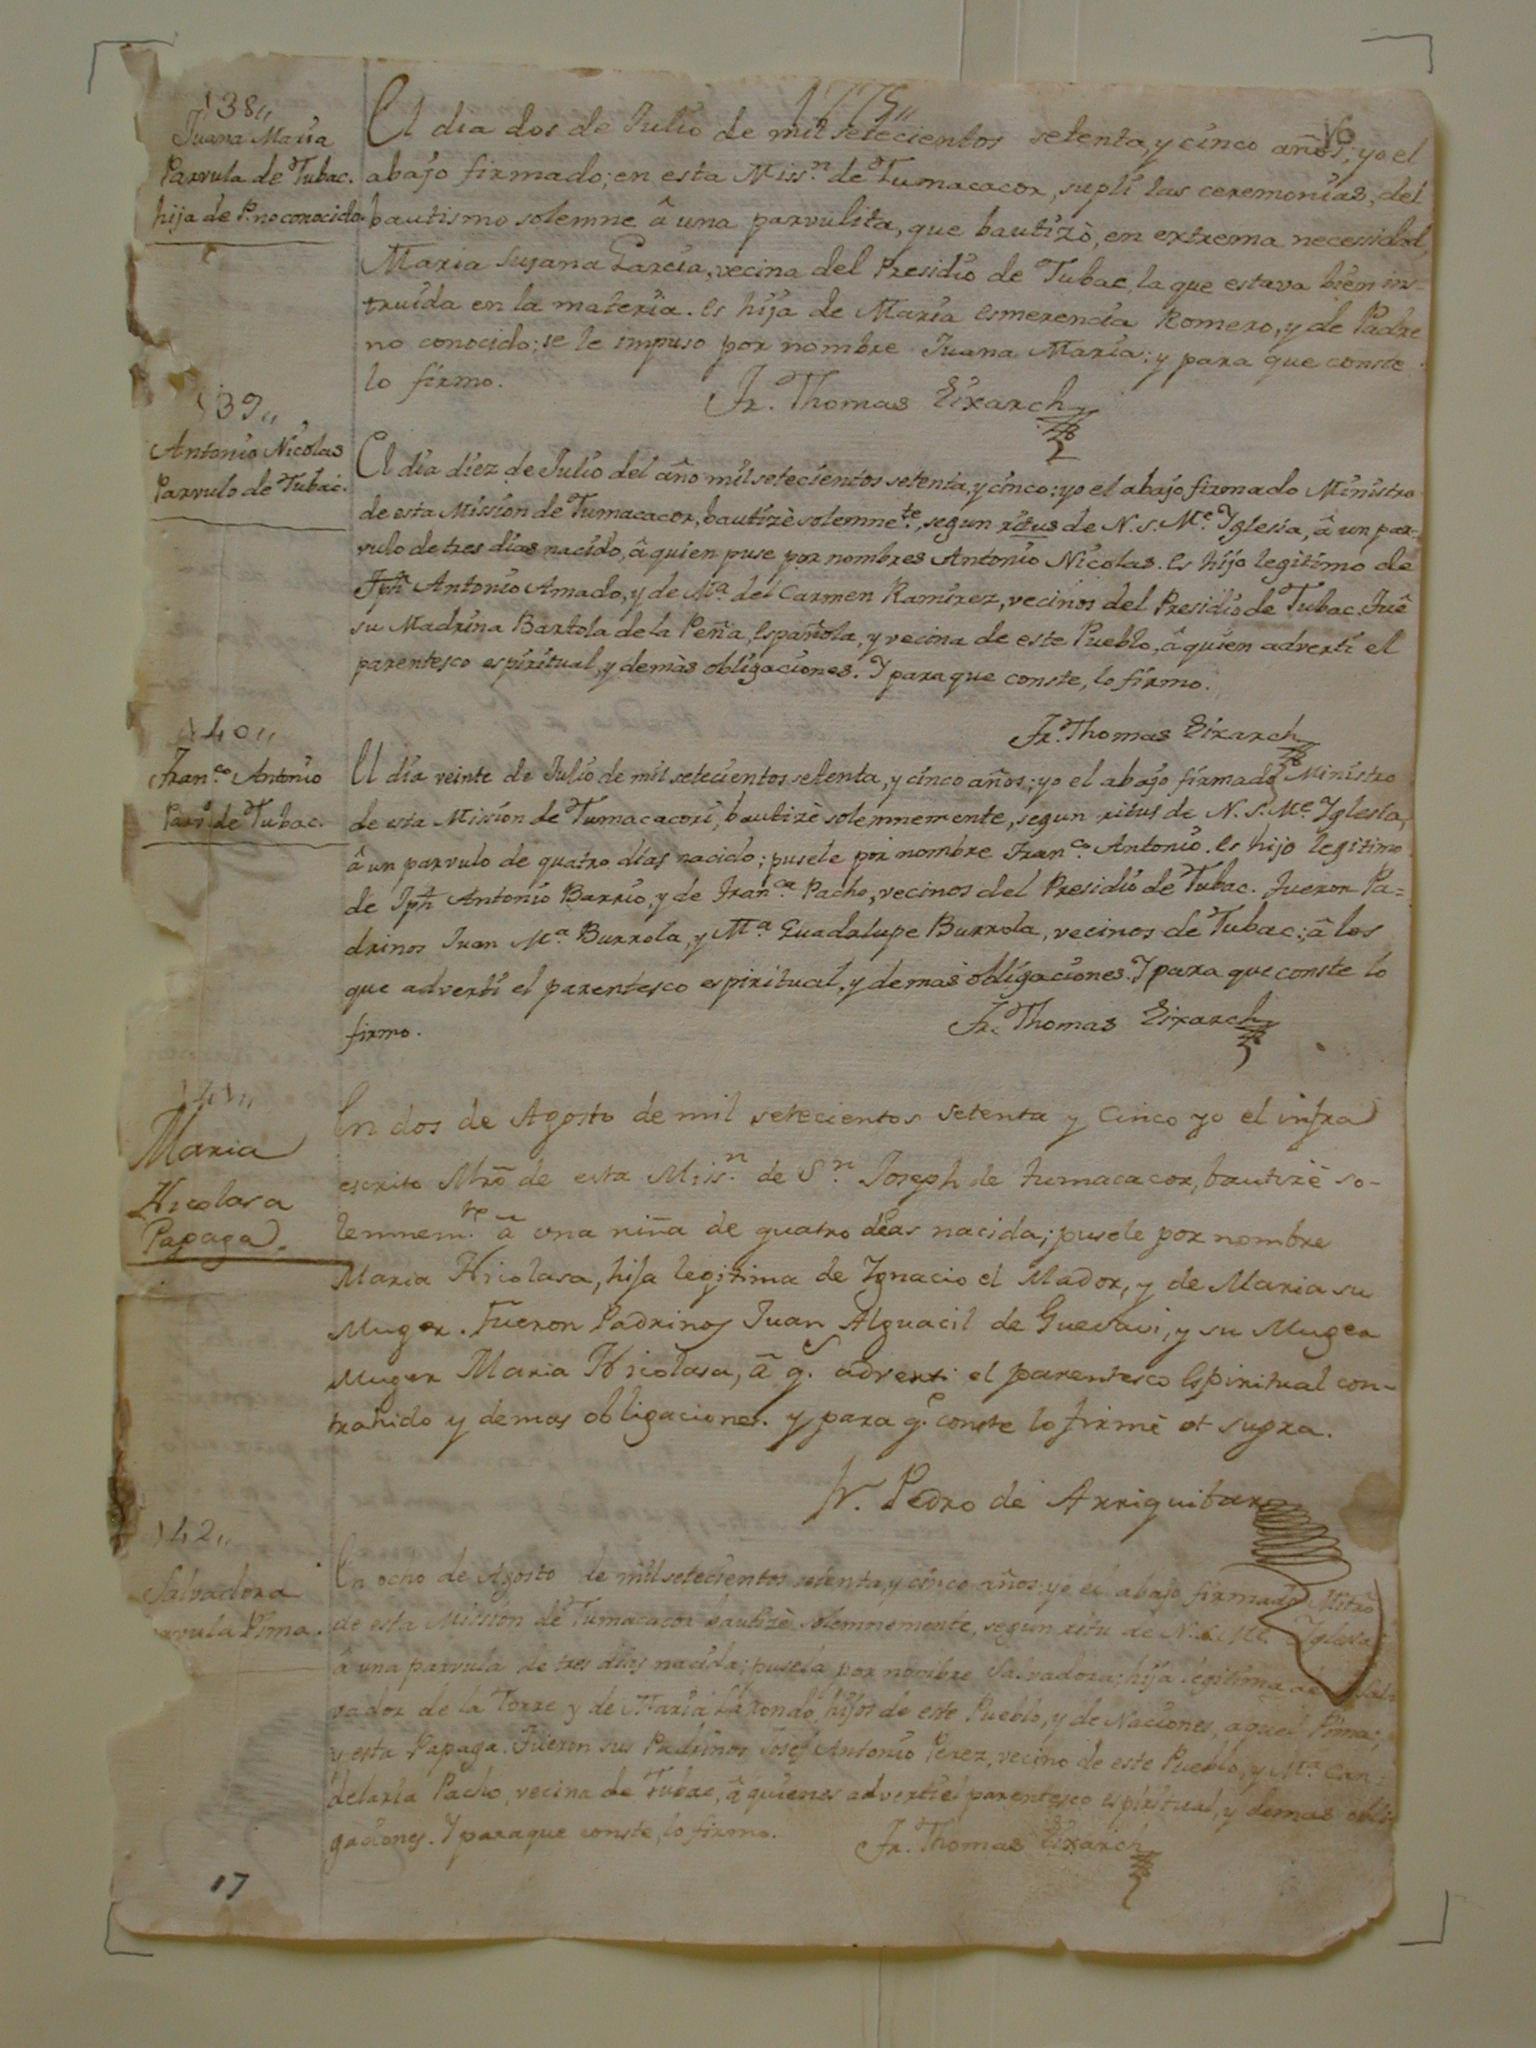 1775,,
70
138,,
Juana Maria
Parvula de Tubac.
hija de P. no conocido
El dia dos de Julio de mil setecientos setenta, y cinco años; yo el
abajo firmado; en esta Miss.n de Tumacacor, suplí las ceremonias, del
bautismo solemne â una parvulita, que bautizò, en extrema necesidad,
Maria Susana Garcia, vecina del Presidio de Tubac, la que estava bien ins-
truida en la materia. Es hija de Maria Esmerencia Romero, y de Padre
no conocido; se le impuso por nombre Juana Maria; y para que conste
lo firmo.
Fr. Thomas Eixarch
139,,
Antonio Nicolas
Parvulo de Tubac.
El dia diez de Julio del año mil setecientos setenta, y cinco: yo el abajo firmado Ministro
de esta Mission de Tumacacor, bautizè solemne.te, segun ritus de N. S. M.e Yglesia, â un par-
vulo de tres dias nacido, â quien puse por nombres Antonio Nicolas. Es hijo legitimo de
Jph Antonio Amado, y de M.a del Carmen Ramirez, vecinos del Presidio de Tubac. Fuê
su Madrina Bartola de la Peña, Española, y vecina de este Pueblo, â quien advertí el
parentesco espiritual, y demàs obligaciones. Y para que conste, lo firmo.
Fr. Thomas Eixarch
140,,
Fran.co Antonio
Parv. de Tubac.
El dia veinte de Julio de mil setecientos setenta, y cinco años; yo el abajo firmado Ministro
de esta Mission de Tumacacori, bautizè solemnemente, segun ritus de N. S. M.e Yglesia,
â un parvulo de quatro dias nacido; pusele por nombre Fran.co Antonio. Es hijo legitimo
de Jph Antonio Barrio, y de Fran.ca Pacho, vecinos del Presidio de Tubac. Fueron Pa=
drinos Juan M.a Burrola, y M.a Guadalupe Burrola, vecinos de Tubac; â los
que advertí el parentesco espiritual, y demas obligaciones. Y para que conste lo
firmo.
Fr. Thomas Eixarch
141,,
Maria
Nicolasa
Papaga.
En dos de Agosto de mil setecientos setenta y cinco yo el infra
escrito Mrõ de esta Miss.n de S.n Joseph de Tumacacor, bautizè so-
lemnem.te â una niña de quatro dias nacida; pusele por nombre
Maria Nicolasa, hija legitima de Ygnacio el Mador, y de Maria su
Muger. Fueron Padrinos Juan Alguacil de Guevavi, y su Muger
Muger Maria Nicolasa, â q.s advertí el parentesco Espiritual con-
trahido y demas obligaciones. y para q.e conste lo firmé ut supra.
Fr. Pedro de Arriquibar
142,,
Salvadora
arvula Pima.
En ocho de Agosto de mil setecientos setenta, y cinco años: yo el abajo firmado Mitrõ
de esta Mission de Tumacacor bautizè solemnemente, segun ritu de N. S. M.e Yglesia
â una parvula de tres dias nacida; pusela por nombre Salvadora; hija legitima de Sal-
vador de la Torre y de Maria Larondo, hijos de este Pueblo, y de Naciones, aquel Pima;
y esta Papaga. Fueron sus Padrinos Josef Antonio Perez, vecino de este Pueblo, y M.a Can=
delaria Pacho, vecina de Tubac, â quienes advertí el parentesco espiritual, y demas obli
gaciones. Y para que conste, lo firmo.
Fr. Thomas Eixarch
17